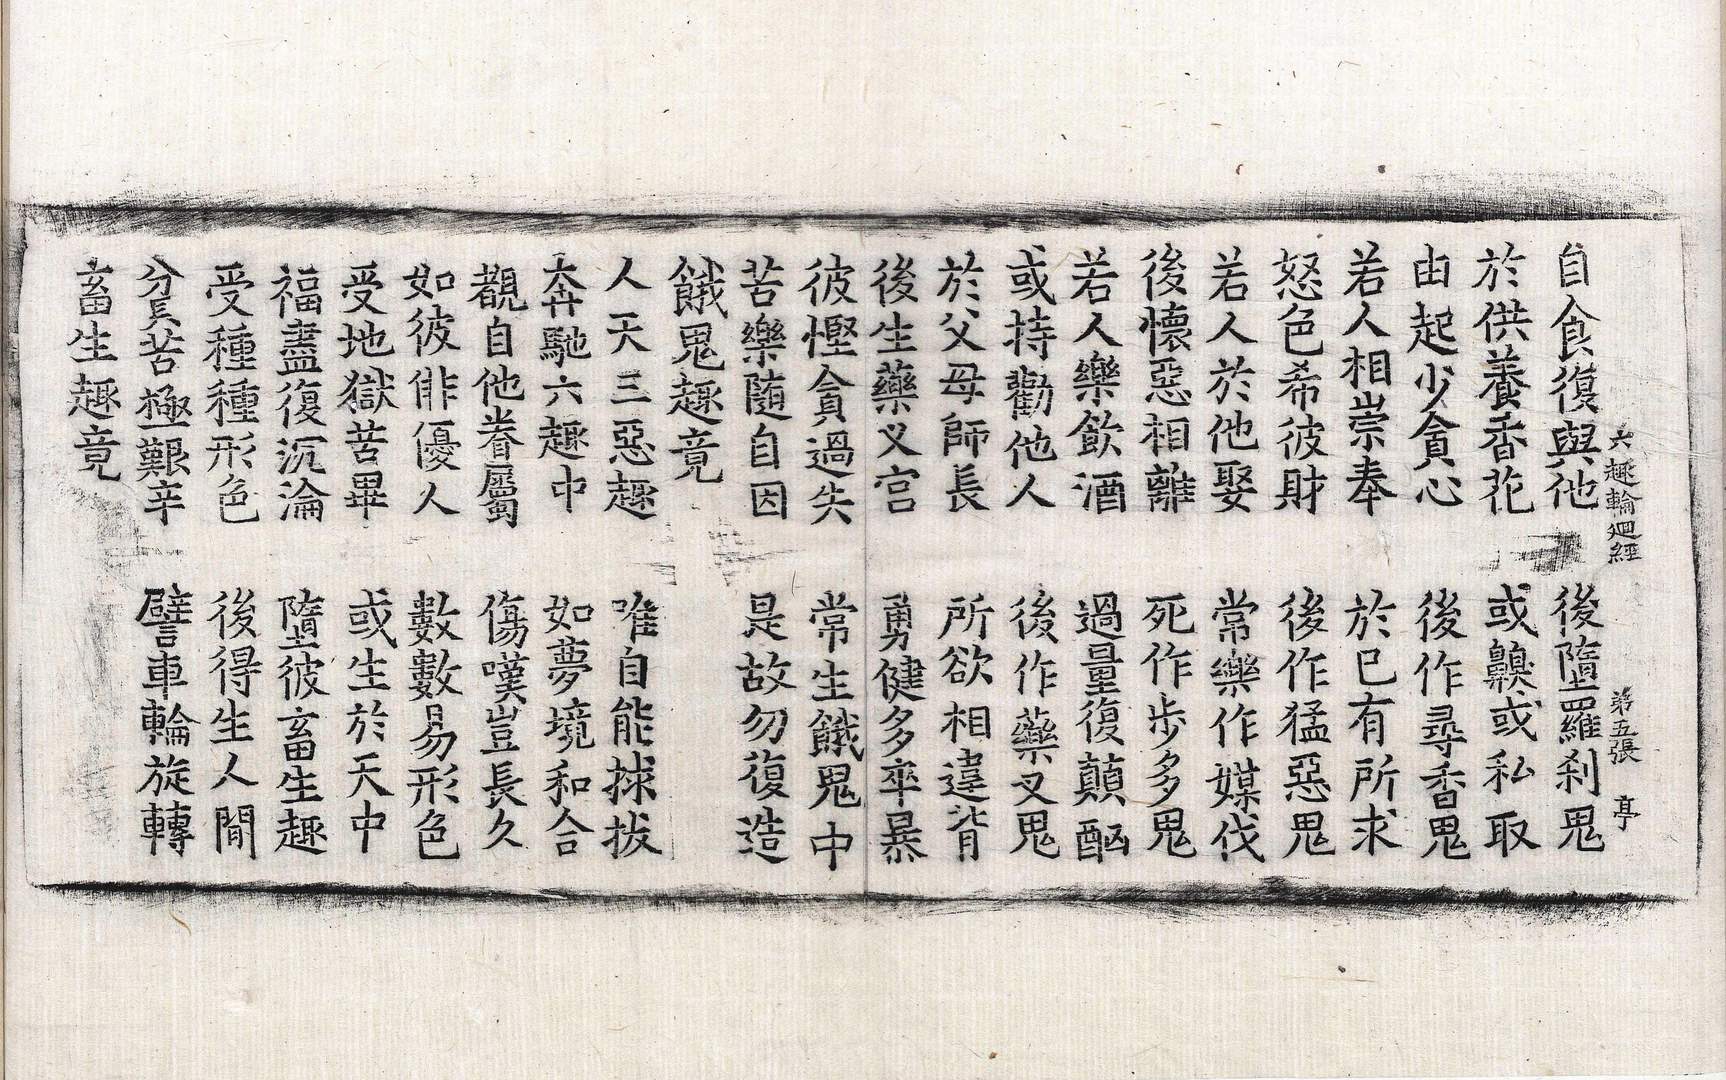 六趣輪廻經 第五張 亭
自食復與他 後墮羅刹鬼
於供養香花 或齅或私取
由起少貪心 後作尋香鬼
若人相崇奉 於巳有所求
怒色希彼財 後作猛惡鬼
若人於他娶 常樂作媒伐
後懷惡相離 死作步多鬼
若人樂飲酒 過量復顛酗
或持勸他人 後作藥叉鬼
於父母師長 所欲相違背
後生藥叉宮 勇健多卒暴
彼慳貪過失 常生餓鬼中
苦樂隨自因 是故勿復造
餓鬼趣竟
人天三惡趣 唯自能捄拔
奔馳六趣中 如夢境和合
觀自他眷屬 傷嘆豈長久
如彼俳優人 數數易形色
受地獄苦畢 或生於天中
福盡復沉淪 墮彼畜生趣
受種種形色 後得生人間
分其苦極艱辛 譬車輪旋轉
畜生趣竟